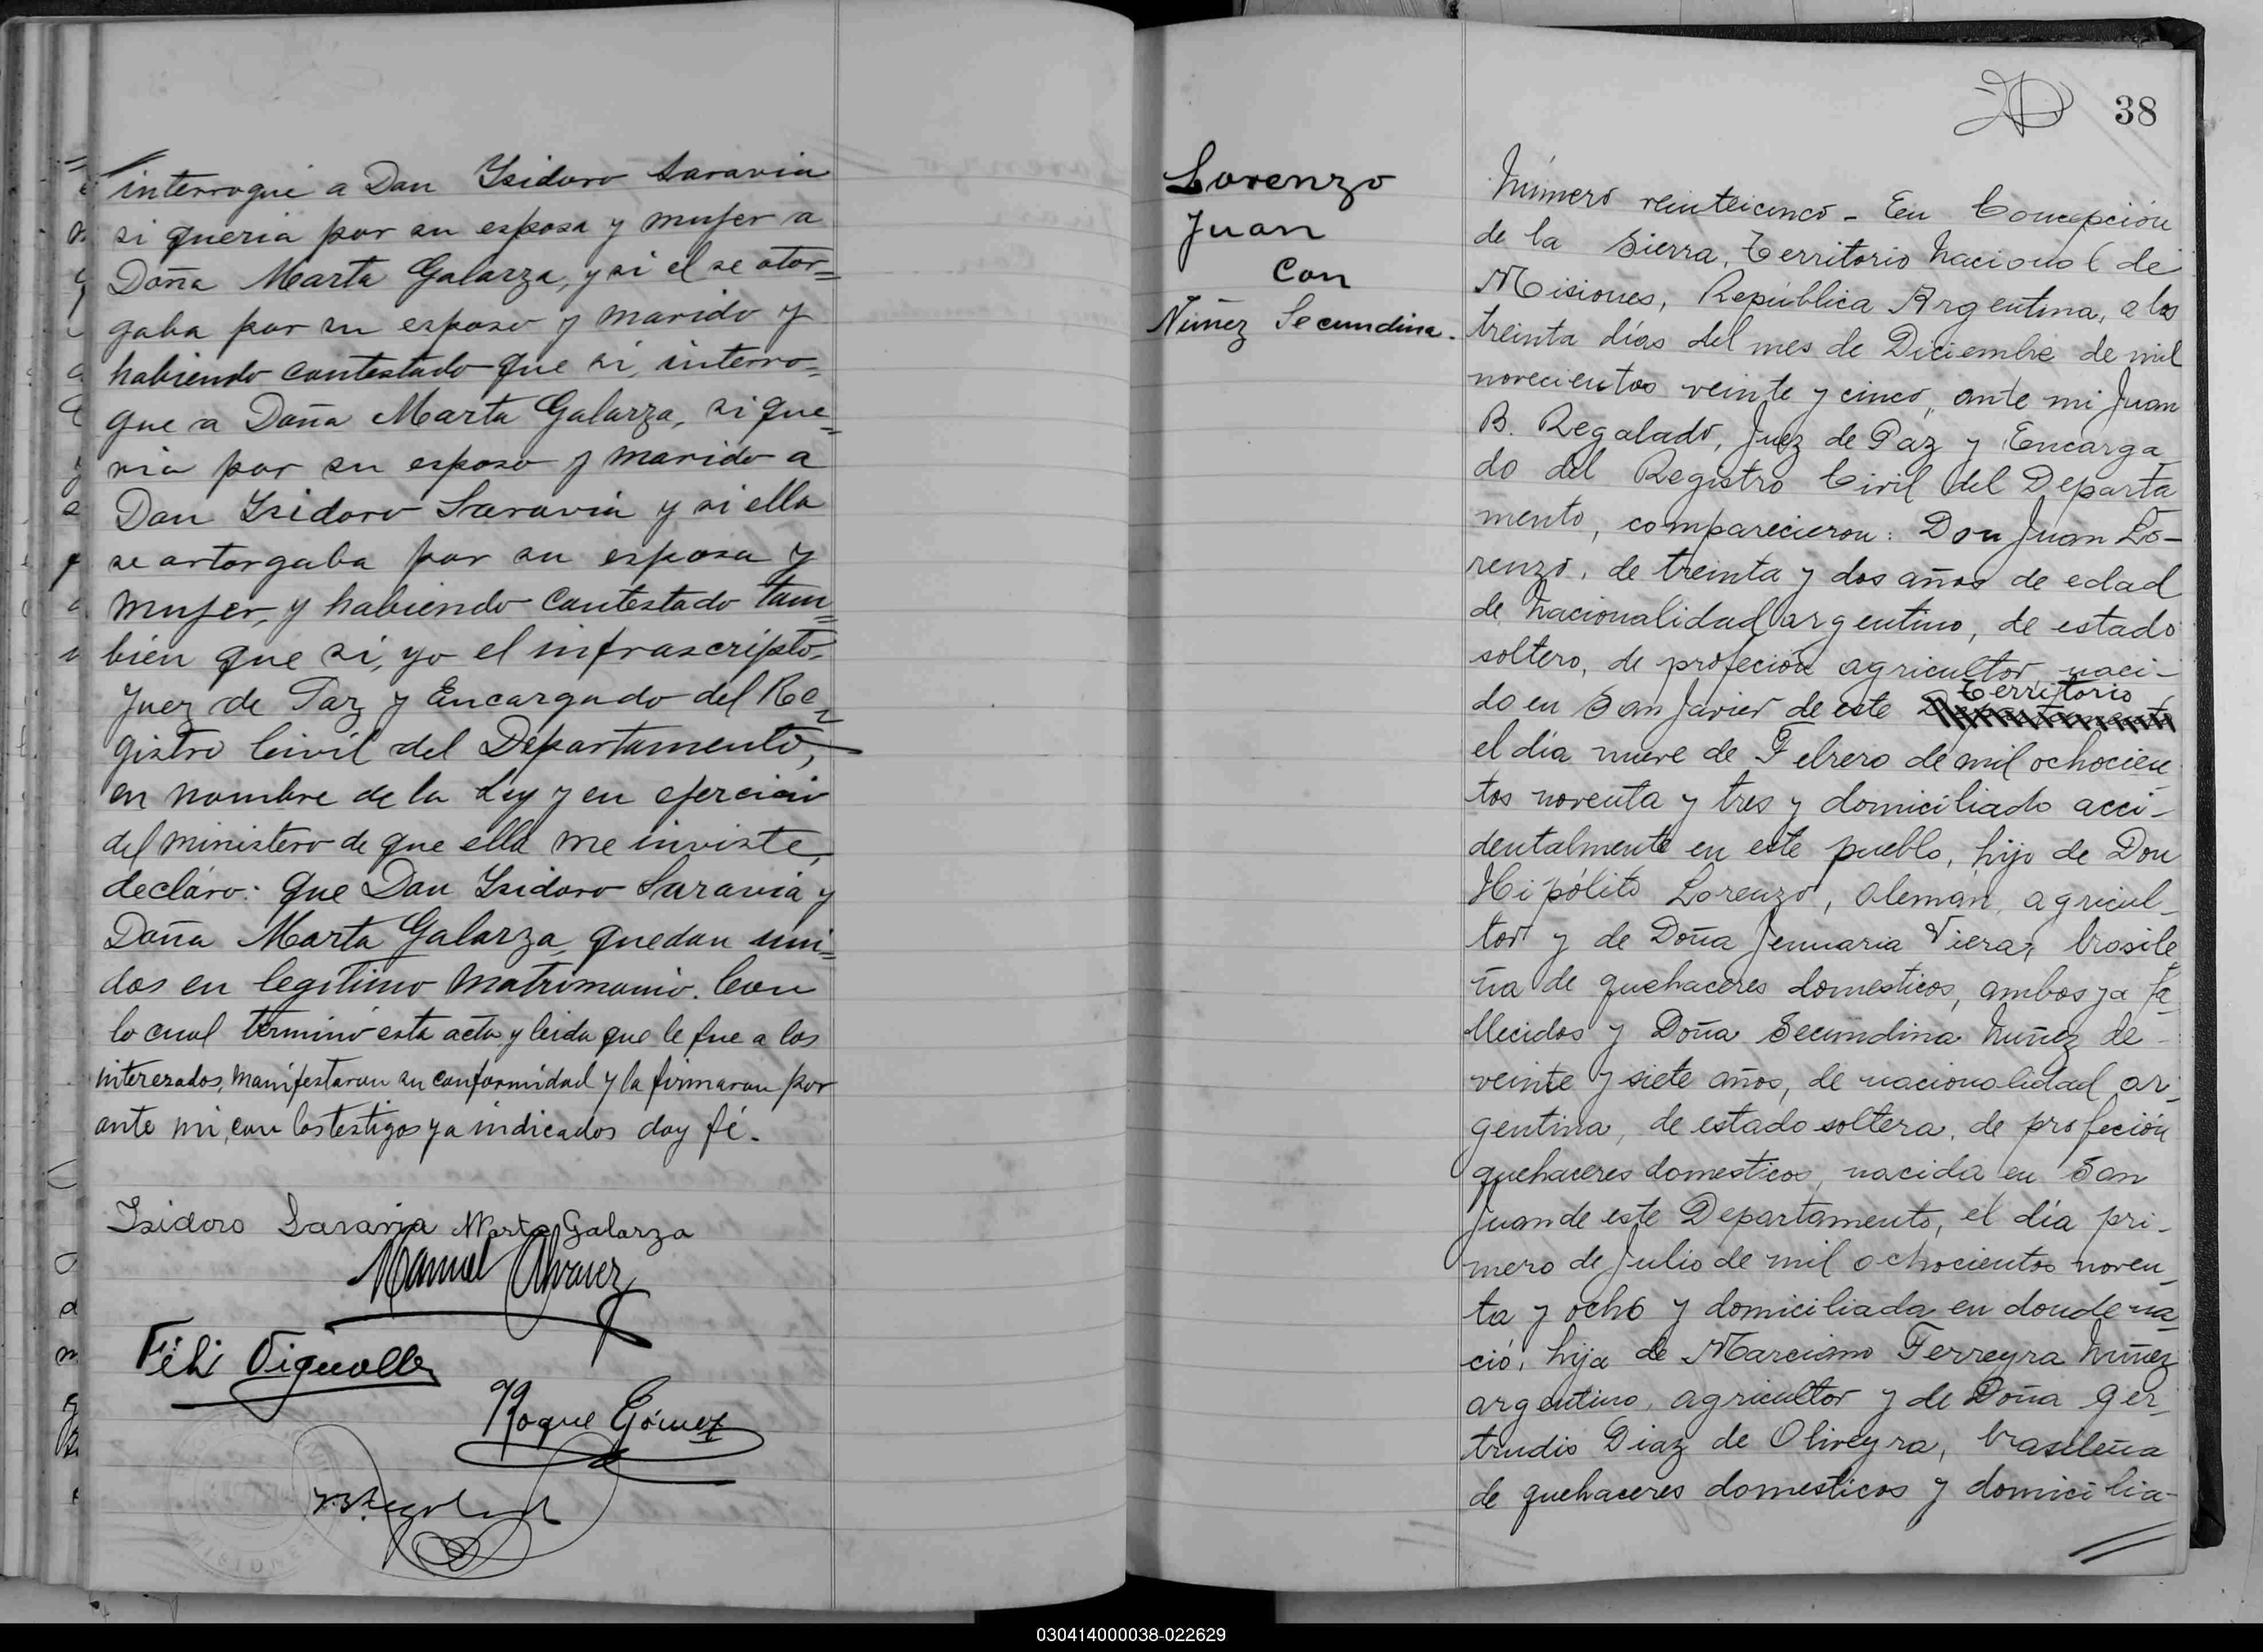 interrogue a Don Isidoro Saravia
si queria por su esposa y mujer a
Doña Marta Galarza, y si el se otor=
gaba por su esposo y marido y
habiendo contestado que si, interro=
gue a Doña Marta Galarza, si que=
ria por su esposo y marido a
Don Isidoro Saravia y si ella
se artorgaba por su esposa y
mujer, y habiendo contestado tam=
bién que si, yo el infrascripto
Juez de Paz y Encargado del Re=
gistro Civil del Departamento,
en nombre de la Ley y en ejercicio
del ministero de que ella me inviste,
decláro: que Don Isidoro Saravia y
Doña Marta Galarza, quedan uni=
dos en legítimo matrimonio. Con
lo cual terminó esta acta y leida que le fue a los
interezados, manifestaron su conformidad y la firmaron por
ante mi, con los testigos ya indicados doy fé.
Isidoro Saravia Marta Galarza
Manuel Alvarez
Roque Gómez
MISIONES
38
Lorenzo
Juan
Con
Núñez Secundina.
Número veinteicinco - En Concepción
de la Sierra, Territorio Nacional de
Misiones, República Argentina, a los
treinta días del mes de Diciembre de mil
novecientos veinte y cinco, ante mi Juan
B. Regalado, Juez de Paz y Encarga_
do del Registro Civil del Departa_
mento, comparecieron: Don Juan Lo-
renzo, de treinta y dos años de edad
de nacionalidad argentino, de estado
soltero, de profeción agricultor naci-
do en San Javier de este Territorio
el día nueve de Febrero de mil ochocien
tos noventa y tres y domiciliado acci-
dentalmente en este pueblo, hijo de Don
Hipólito Lorenzo, aleman, agricul_
tor y de Doña Jenuaria Viera, brasile_
ña de quehaceres domesticos, ambos ya fa_
llecidos y Doña Secundina Nuñez de
veinte y siete años, de nacionalidad ar_
gentina, de estado soltera, de profeción
quehaceres domesticos, nacida en San
Juan de este Departamento, el día pri-
mero de Julio de mil ochocientos noven_
ta y ocho y domiciliada en donde na_
ció, hija de Marciano Ferreyra Núñez
argentino, agricultor y de Doña Ger_
trudis Diaz de Oliveyra, brasileña
de quehaceres domesticos y domicilia-
030414000038-022629